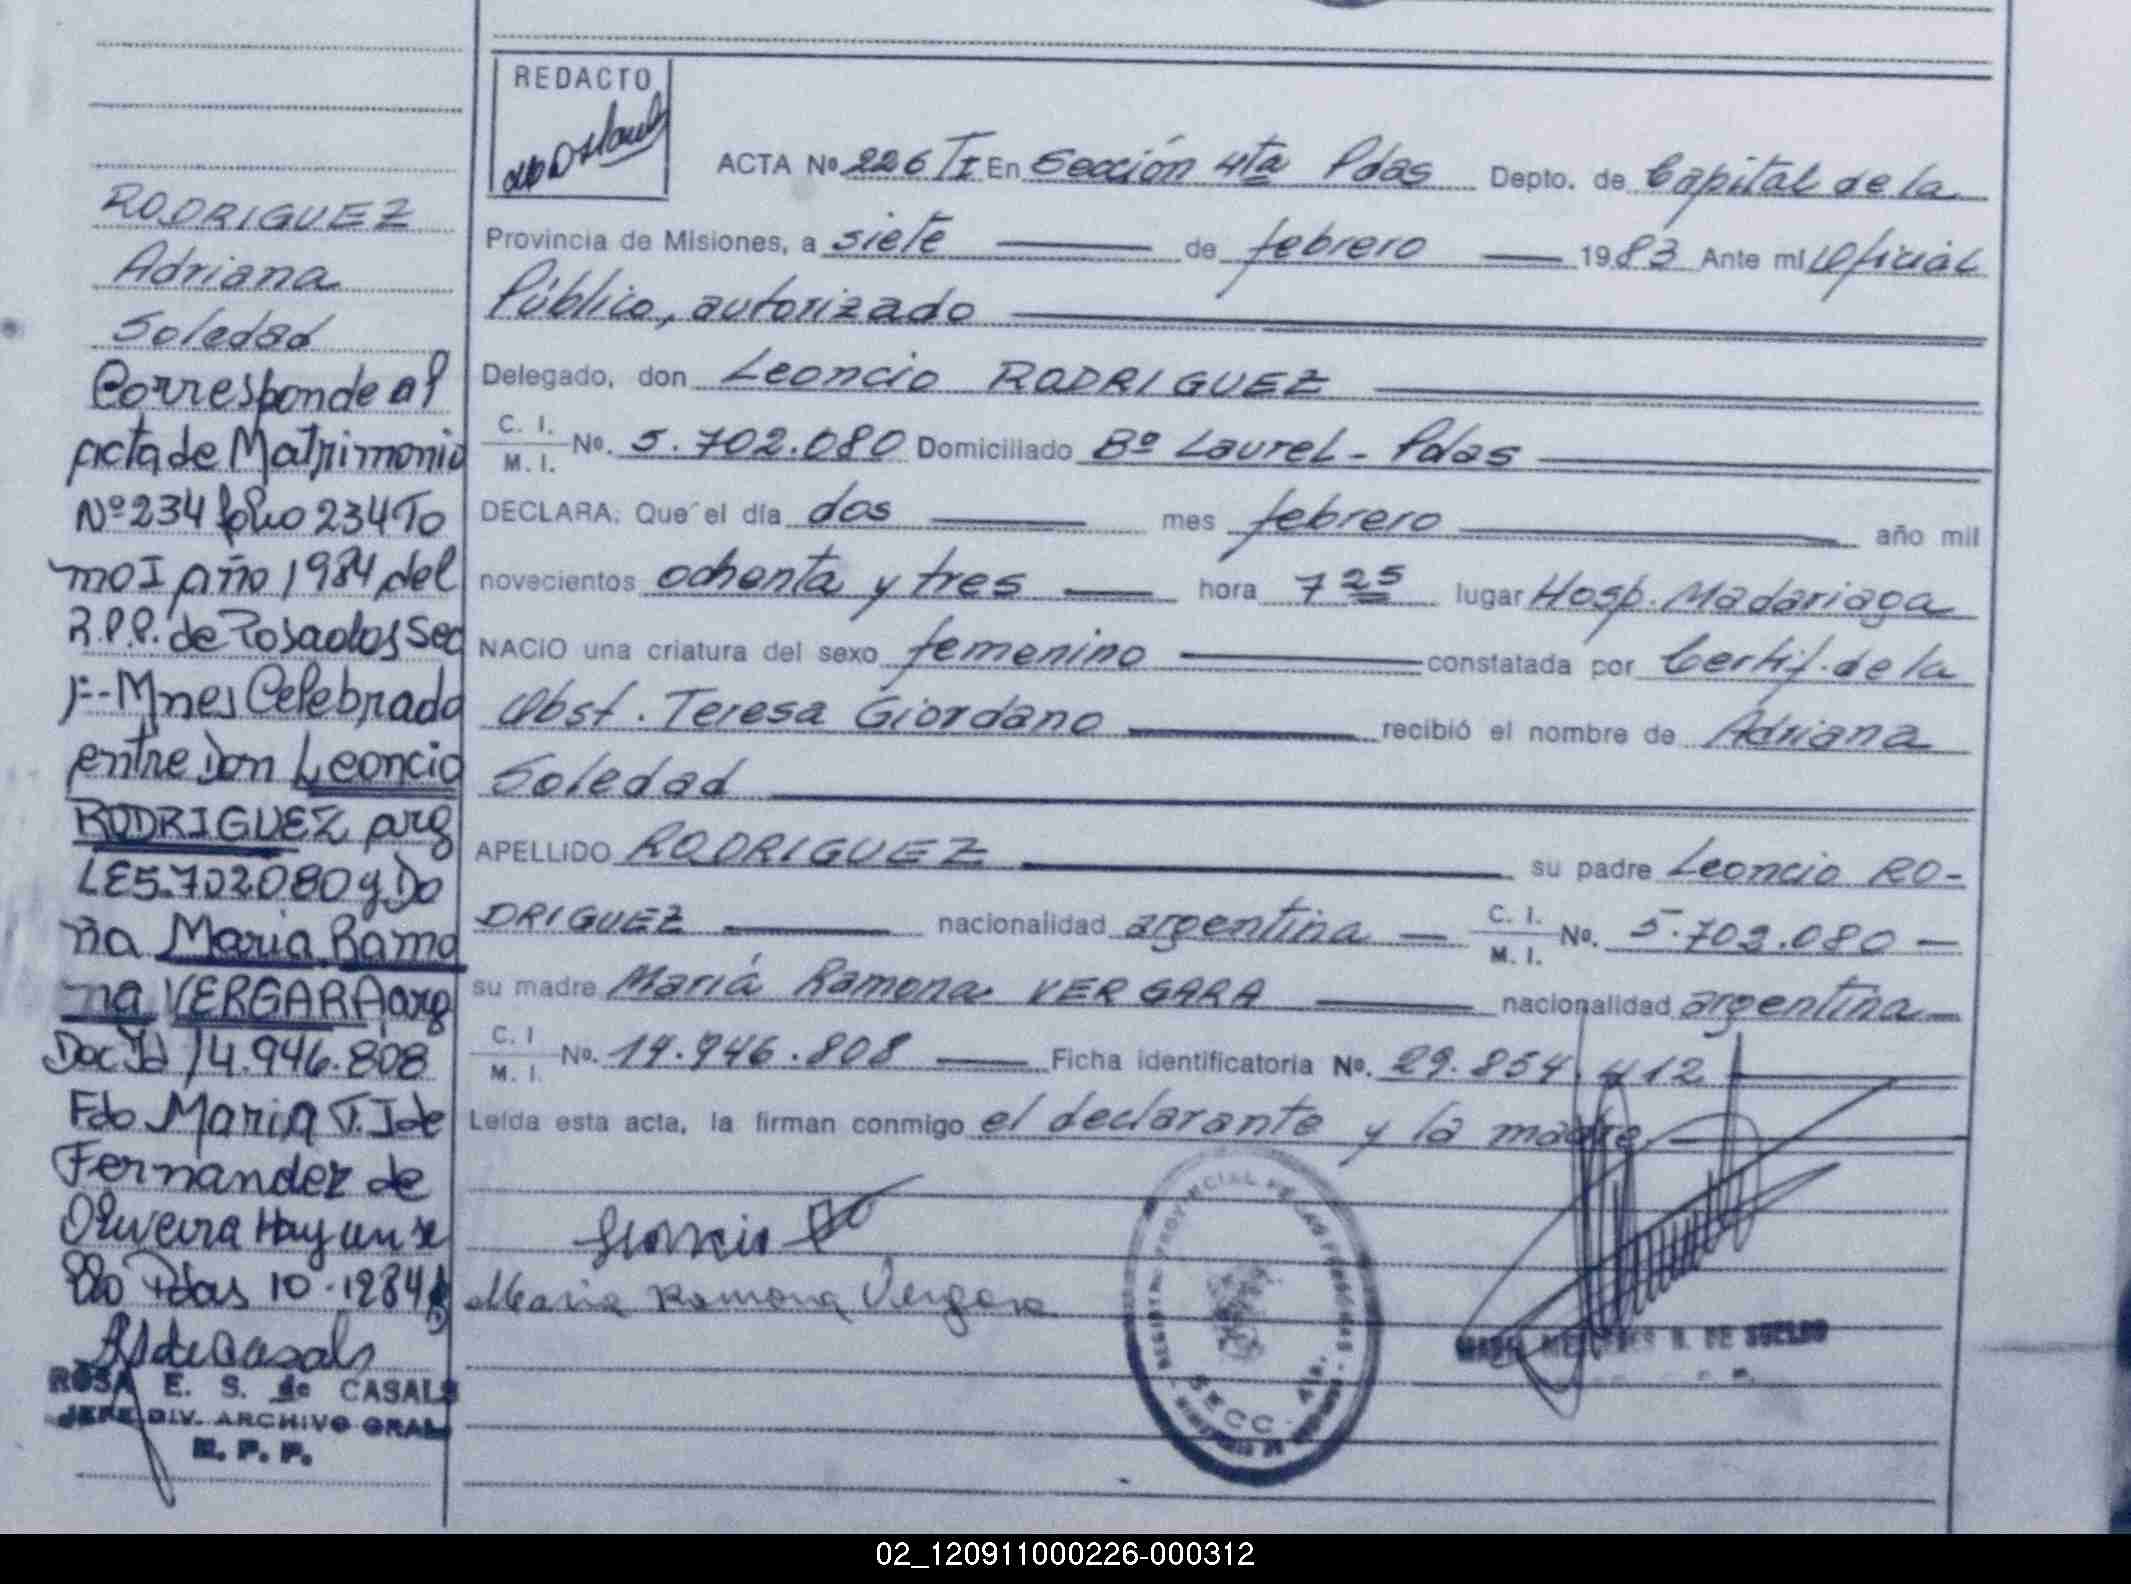 RODRIGUEZ
Adriana
Soledad
Corresponde al
acta de Matrimonio
Nº 234 folio 234 To
mo I año 1984 del
R.P.P. de Posadas Sec
1ª - Mnes Celebrado
entre Don Leoncio
RODRIGUEZ arg
LE 5.702.080 y Do
ña Maria Ramo
na VERGARA arg
Doc Id 14.946.808
Fdo Maria T. I de
Fernandez de
Oliveira Hay un se
llo Pdas 10-1984
RSdeCasals
ROSA E. S. de CASALS
JEFE DIV. ARCHIVO GRAL
R. P. P.
REDACTO
ACTA Nº 226 TI En Sección 4ta Pdas Depto. de Capital de la
Provincia de Misiones, a siete de febrero 1983 Ante mí Oficial
Público, autorizado
Delegado, don Leoncio RODRIGUEZ
C. I. / M. I. Nº. 5.702.080 Domiciliado Bº Laurel - Pdas
DECLARA: Que el día dos mes febrero año mil
novecientos ochenta y tres hora 7 25 lugar Hosp. Madariaga
NACIO una criatura del sexo femenino constatada por Certif. de la
Obst. Teresa Giordano recibió el nombre de Adriana
Soledad
APELLIDO RODRIGUEZ su padre Leoncio RO-
DRIGUEZ nacionalidad argentina C. I. / M. I. Nº. 5.702.080
su madre María Ramona VERGARA nacionalidad argentina
C. I / M. I. Nº. 14.946.808 Ficha identificatoria Nº. 29.854.412
Leída esta acta, la firman conmigo el declarante y la madre
Leoncio
Maria Ramona Vergara
REGISTRO PROVINCIAL DE LAS PERSONAS
SECC. 4ta.
MERCEDES R. DE SUELDO
02_120911000226-000312